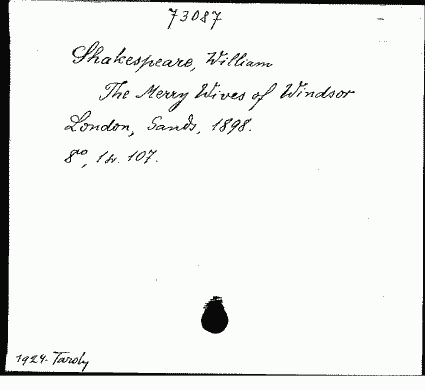 73087
Shakespeare, William
The Merry Wives of Windsor
London, Sands, 1898.
8ro, 1 w. 107.
1924. Taroly